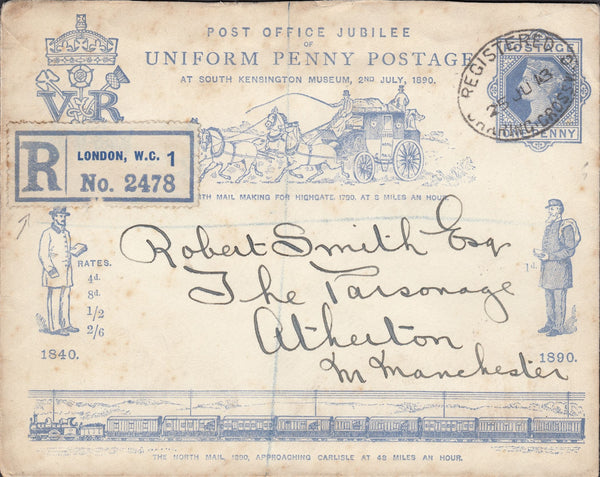 POST OFFICE JUBILEE
OF
UNIFORM PENNY POSTAGE
AT SOUTH KENSINGTON MUSEUM, 2ND JULY, 1890.
V R
POSTAGE
PENNY
REGISTERED
25 JU 13
CHARING CROSS
R
LONDON, W.C. 1
No. 2478
TH MAIL MAKING FOR HIGHGATE 1790. AT 8 MILES AN HOUR.
Robert Smith Esq
The Parsonage
Atherton
Nr Manchester
RATES.
4d.
8d.
1/2
2/6
1840.
1d.
1890.
THE NORTH MAIL 1890, APPROACHING CARLISLE AT 48 MILES AN HOUR.